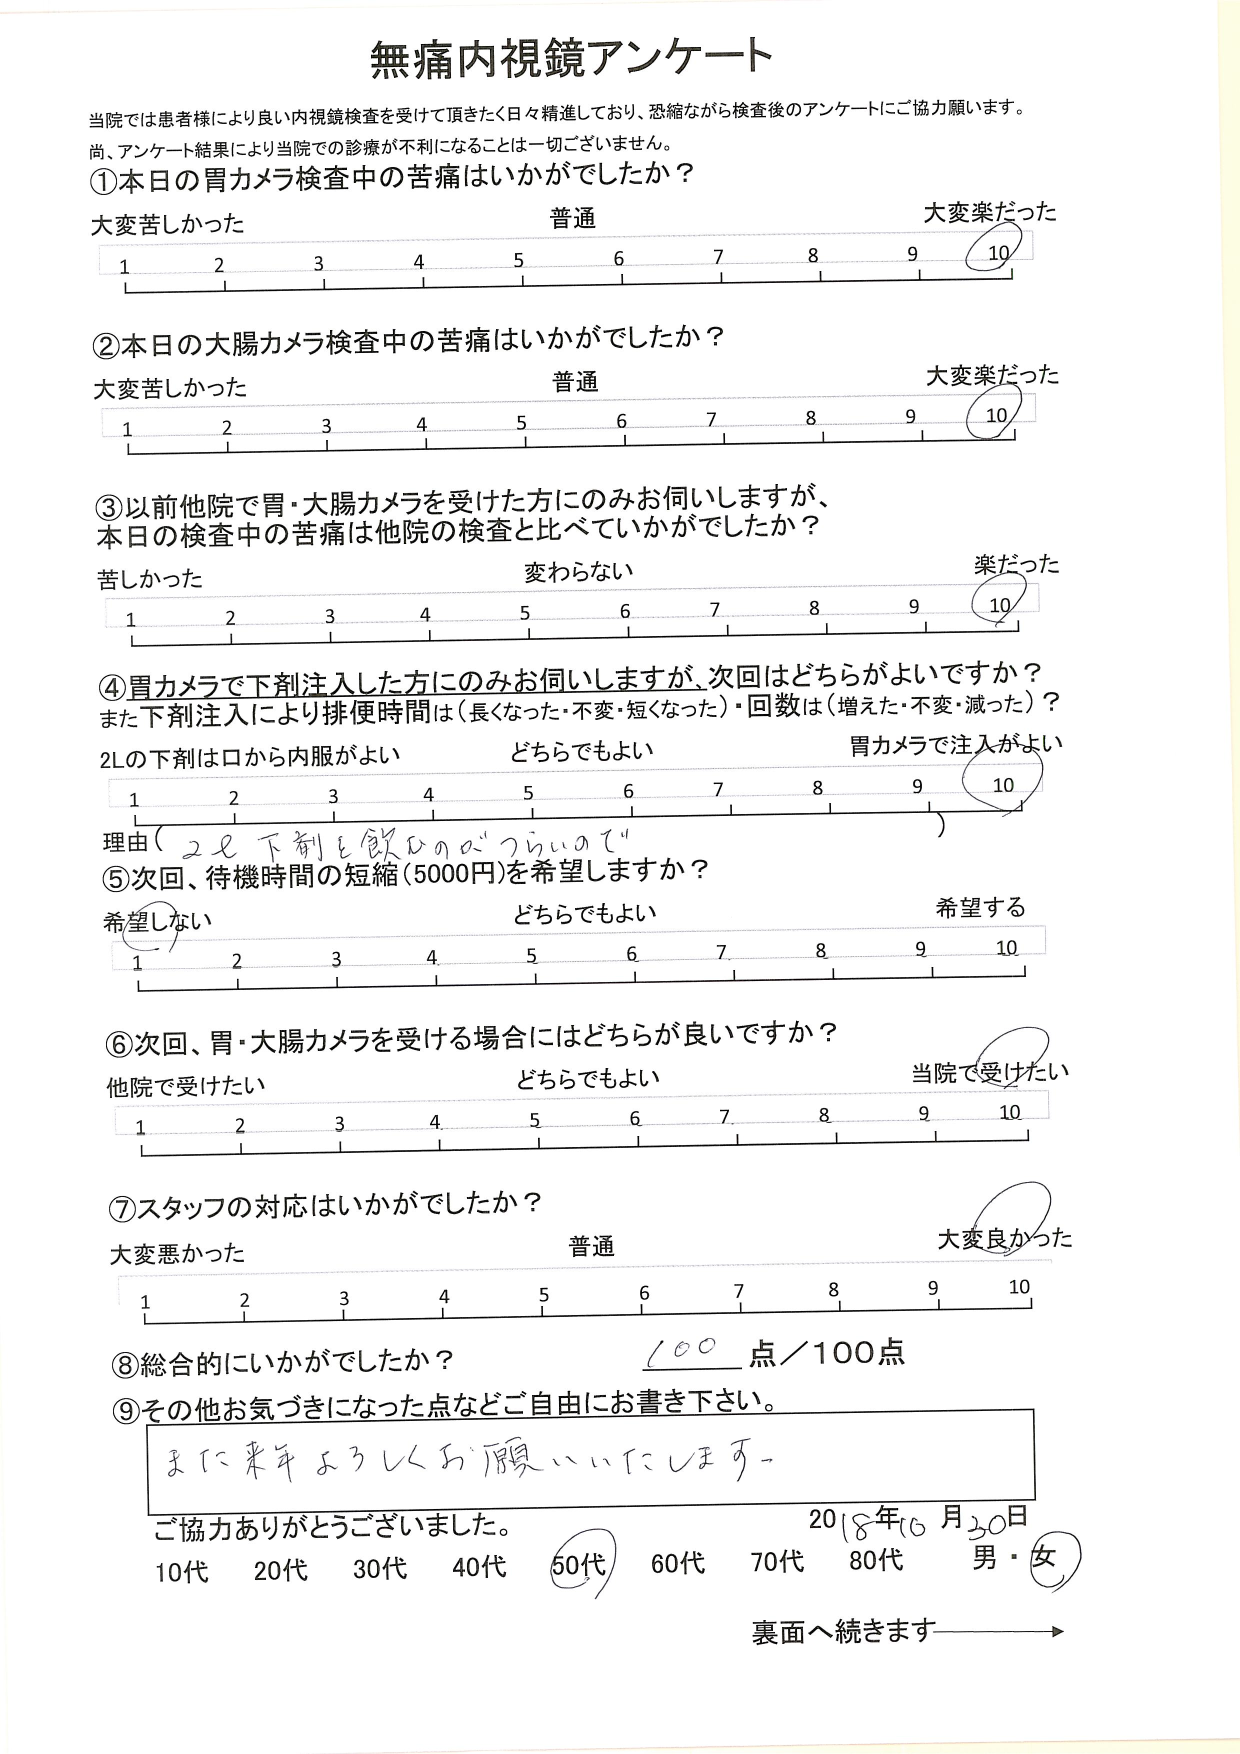 無痛内視鏡アンケート
当院では患者様により良い内視鏡検査を受けて頂きたく日々精進しており、恐縮ながら検査後のアンケートにご協力願います。
尚、アンケート結果により当院での診療が不利になることは一切ございません。
①本日の胃カメラ検査中の苦痛はいかがでしたか？
大変苦しかった 普通 大変楽だった
1 2 3 4 5 6 7 8 9 10
②本日の大腸カメラ検査中の苦痛はいかがでしたか？
大変苦しかった 普通 大変楽だった
1 2 3 4 5 6 7 8 9 10
③以前他院で胃・大腸カメラを受けた方にのみお伺いしますが、
本日の検査中の苦痛は他院の検査と比べていかがでしたか？
苦しかった 変わらない 楽だった
1 2 3 4 5 6 7 8 9 10
④胃カメラで下剤注入した方にのみお伺いしますが、次回はどちらがよいですか？
また下剤注入により排便時間は（長くなった・不変・短くなった）・回数は（増えた・不変・減った）？
2Lの下剤は口から内服がよい どちらでもよい 胃カメラで注入がよい
1 2 3 4 5 6 7 8 9 10
理由（ 2ℓ下剤を飲むのがつらいので ）
⑤次回、待機時間の短縮（5000円）を希望しますか？
希望しない どちらでもよい 希望する
1 2 3 4 5 6 7 8 9 10
⑥次回、胃・大腸カメラを受ける場合にはどちらが良いですか？
他院で受けたい どちらでもよい 当院で受けたい
1 2 3 4 5 6 7 8 9 10
⑦スタッフの対応はいかがでしたか？
大変悪かった 普通 大変良かった
1 2 3 4 5 6 7 8 9 10
⑧総合的にいかがでしたか？ 100 点／100点
⑨その他お気づきになった点などご自由にお書き下さい。
また来年よろしくお願いいたします。
ご協力ありがとうございました。 2018年10月30日
10代 20代 30代 40代 50代 60代 70代 80代 男・女
裏面へ続きます